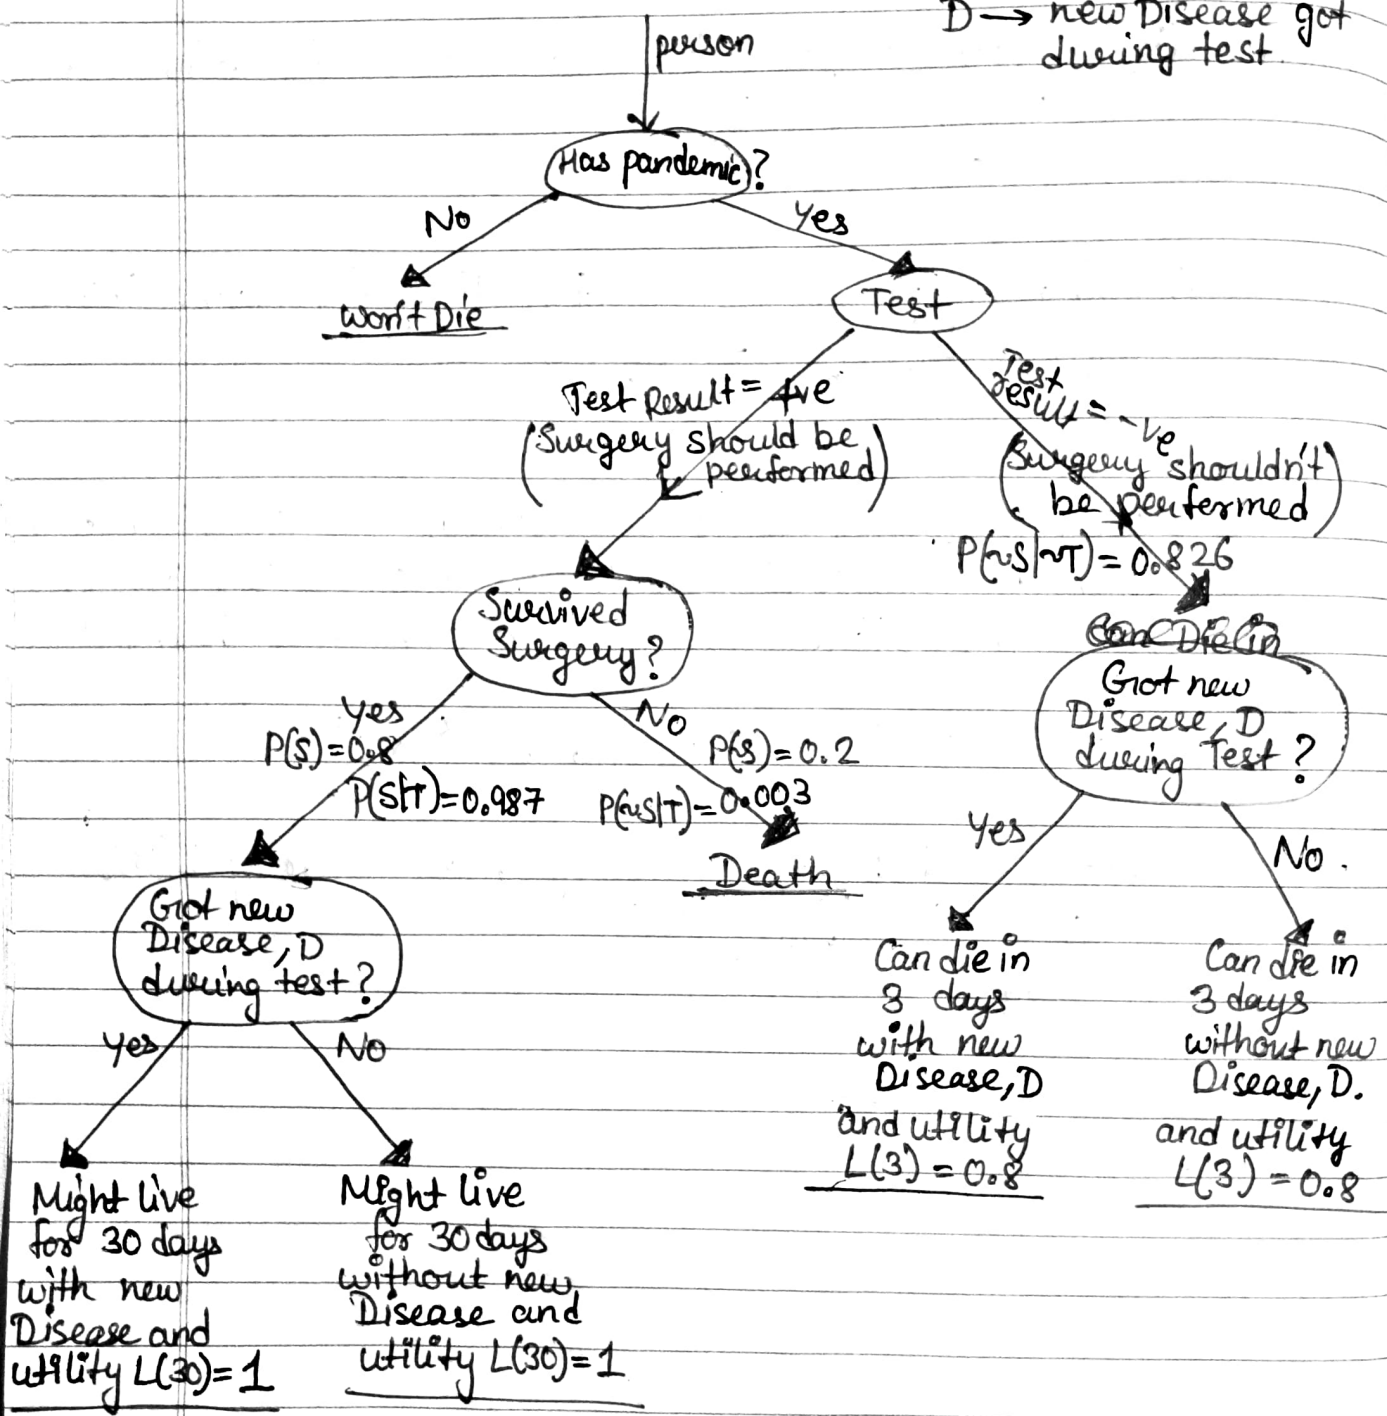 D → new Disease got
during test
person
Has pandemic?
No
Yes
Won't Die
Test
Test Result = +ve
(Surgery should be
performed)
Test
result = -ve
(Surgery shouldn't
be performed)
P(~S|~T) = 0.826
Can Die in
Survived
Surgery?
Got new
Disease, D
during Test?
Yes
P(S) = 0.8
P(S|T) = 0.987
No
P(S) = 0.2
P(~S|T) = 0.003
Death
Yes
No
Got new
Disease, D
during test?
Can die in
3 days
with new
Disease, D
and utility
L(3) = 0.8
Can die in
3 days
without new
Disease, D.
and utility
L(3) = 0.8
Yes
No
Might live
for 30 days
with new
Disease and
utility L(30) = 1
Might live
for 30 days
without new
Disease and
utility L(30) = 1